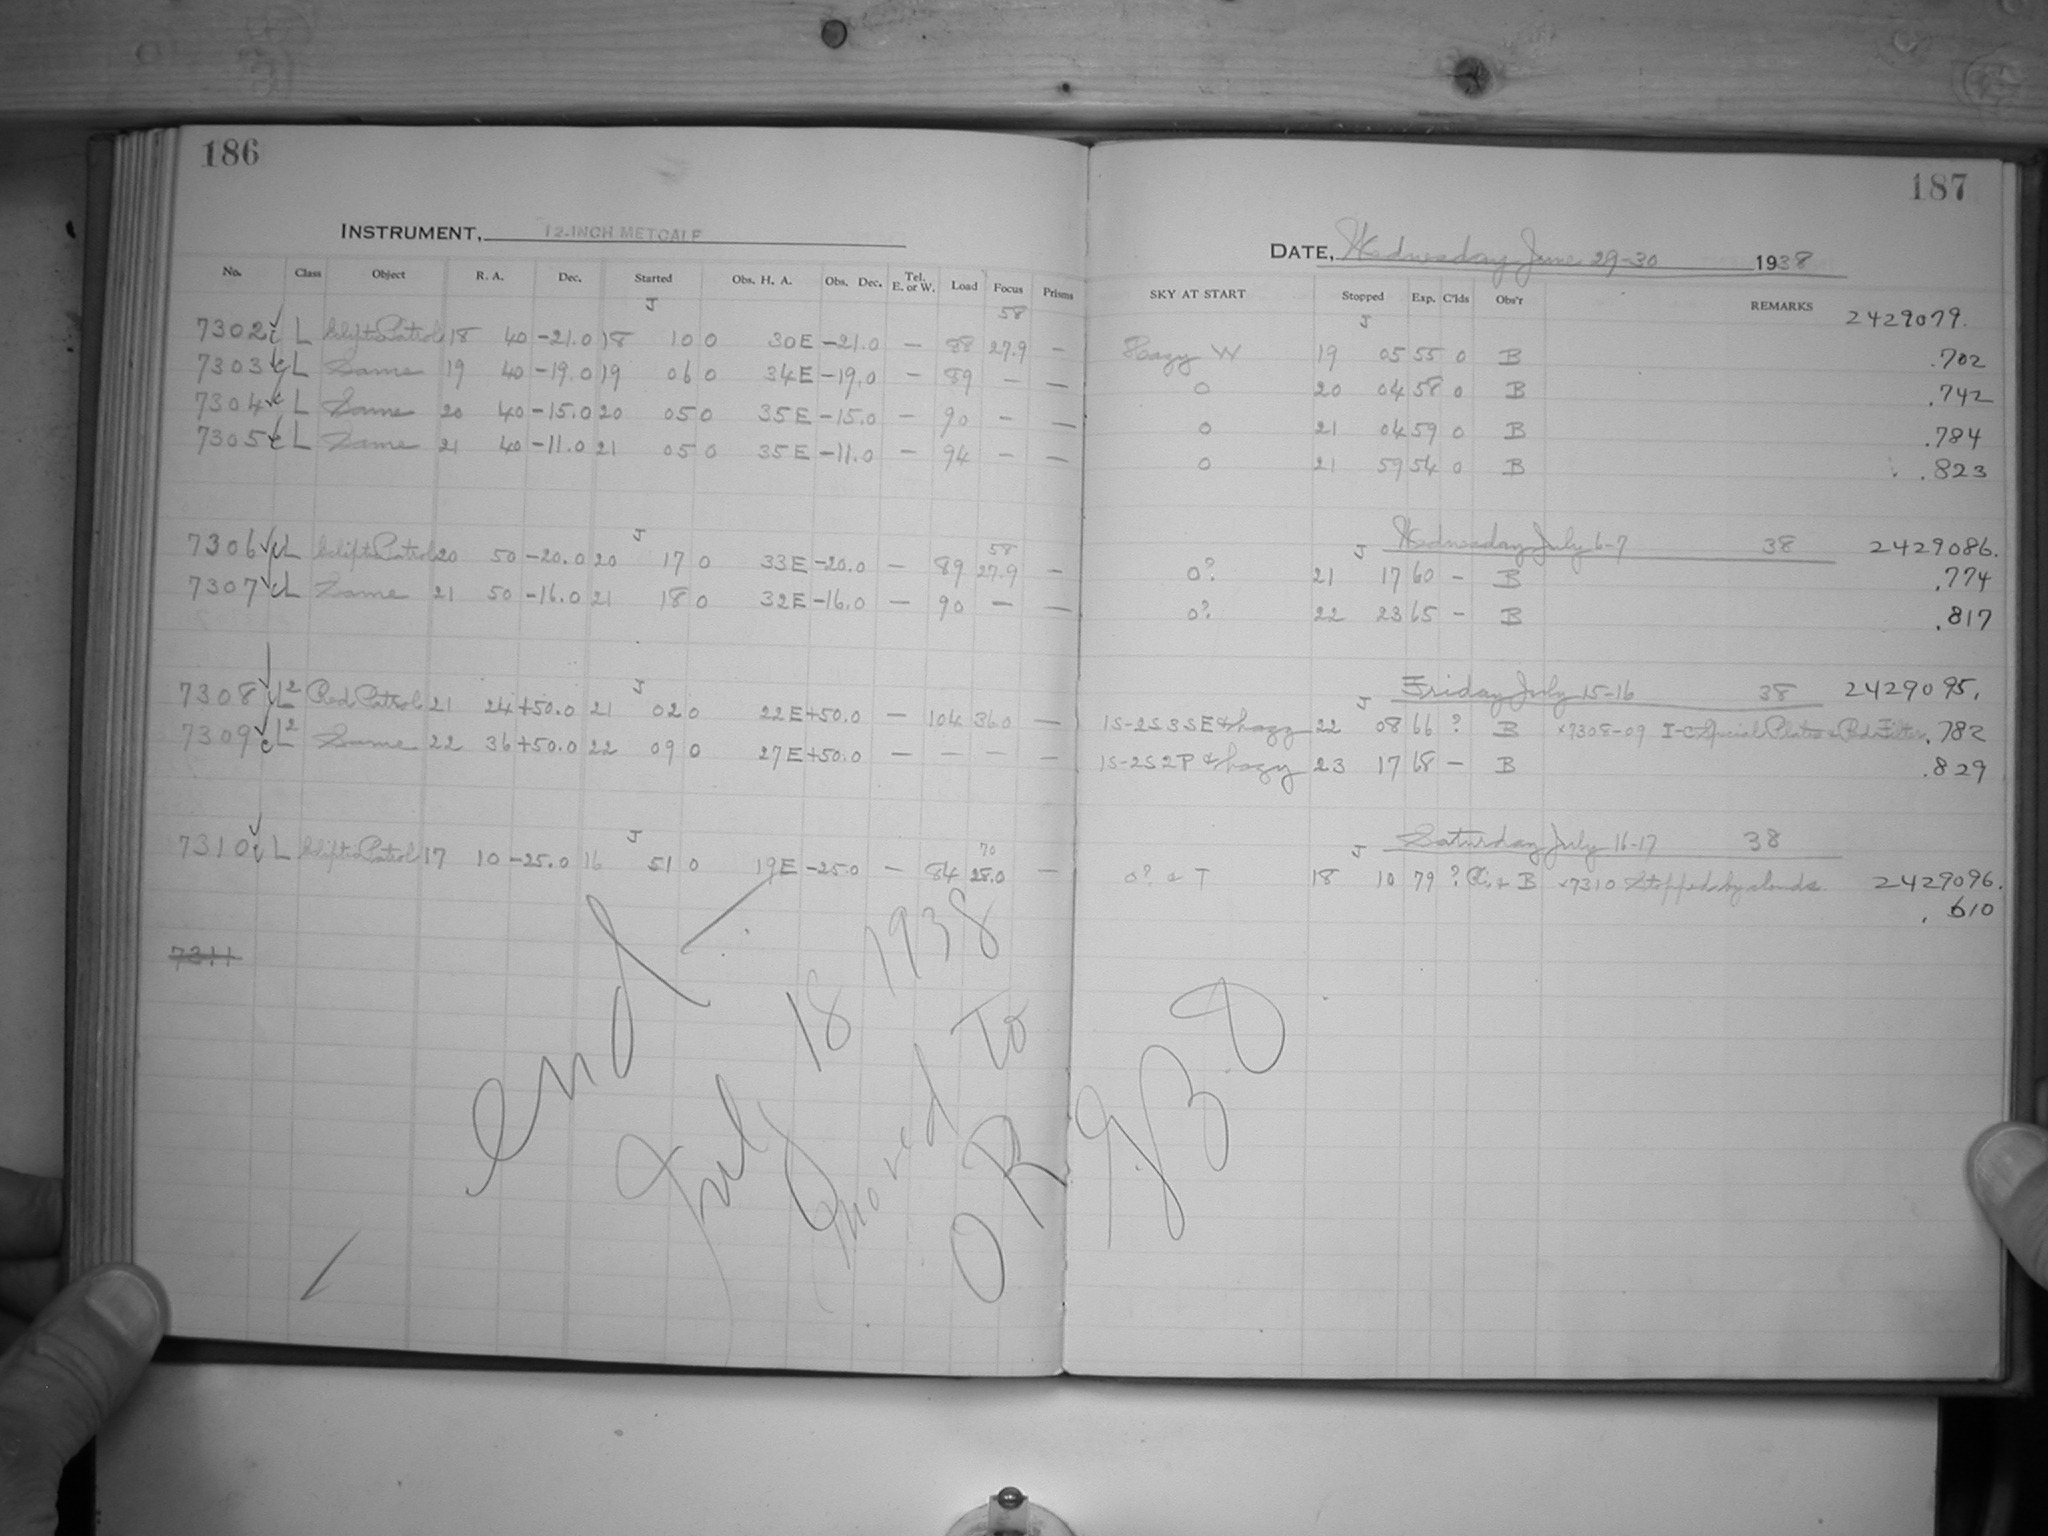 186
INSTRUMENT, 12-INCH METCALF
No. Class Object R. A. Dec. Started Obs. H. A. Obs. Dec. Tel. E. or W. Load Focus Prisms
J 58
7302 L Eclipt. Patrol 18 40 -21.0 18 10 0 30E -21.0 — 88 27.9 —
7303 L Same 19 40 -19.0 19 06 0 34E -19.0 — 89 — —
7304 L Same 20 40 -15.0 20 05 0 35E -15.0 — 90 — —
7305 L Same 21 40 -11.0 21 05 0 35E -11.0 — 94 — —
J 58
7306 L Eclipt. Patrol 20 50 -20.0 20 17 0 33E -20.0 — 89 27.9 —
7307 L Same 21 50 -16.0 21 18 0 32E -16.0 — 90 — —
J
7308 L2 Red Patrol 21 24 +50.0 21 02 0 22E +50.0 — 104 36.0 —
7309 L2 Same 22 36 +50.0 22 09 0 27E +50.0 — — — —
J 70
7310 L Eclipt. Patrol 17 10 -25.0 16 51 0 19E -25.0 — 84 28.0 —
7311
end —
July 18 1938
moved to
OR
187
DATE, Wednesday June 29-30 1938
SKY AT START Stopped Exp. C'lds Obs'r REMARKS
J 2429079.
Hazy W 19 05 55 0 B .702
0 20 04 58 0 B .742
0 21 04 59 0 B .784
0 21 59 54 0 B .823
J Wednesday July 6-7 38 2429086.
0? 21 17 60 — B .774
0? 22 23 65 — B .817
J Friday July 15-16 38 2429095.
1S-2S 3SE & hazy 22 08 66 ? B x7308-09 I-C Special Plates & Red Filter .782
1S-2S 2P & hazy 23 17 68 — B .829
J Saturday July 16-17 38
0? & T 18 10 79 ? & B x7310 Stopped by clouds. 2429096.
.610